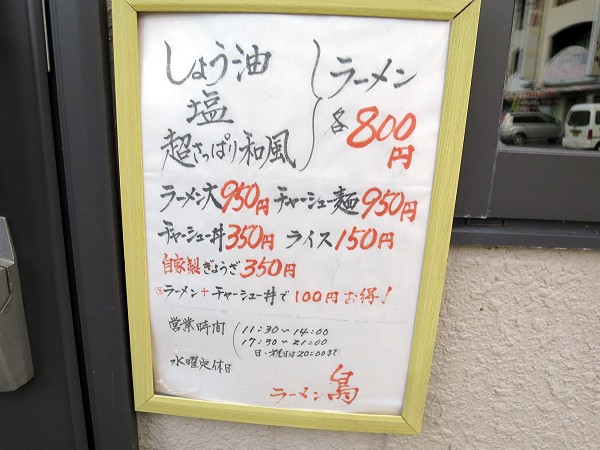 しょう油
塩
超さっぱり和風
ラーメン
各800円
ラーメン大950円 チャーシュー麺950円
チャーシュー丼350円 ライス150円
自家製ぎょうざ350円
※ラーメン+チャーシュー丼で100円お得!
営業時間 11:30~14:00
17:30~21:00
水曜定休日
ラーメン